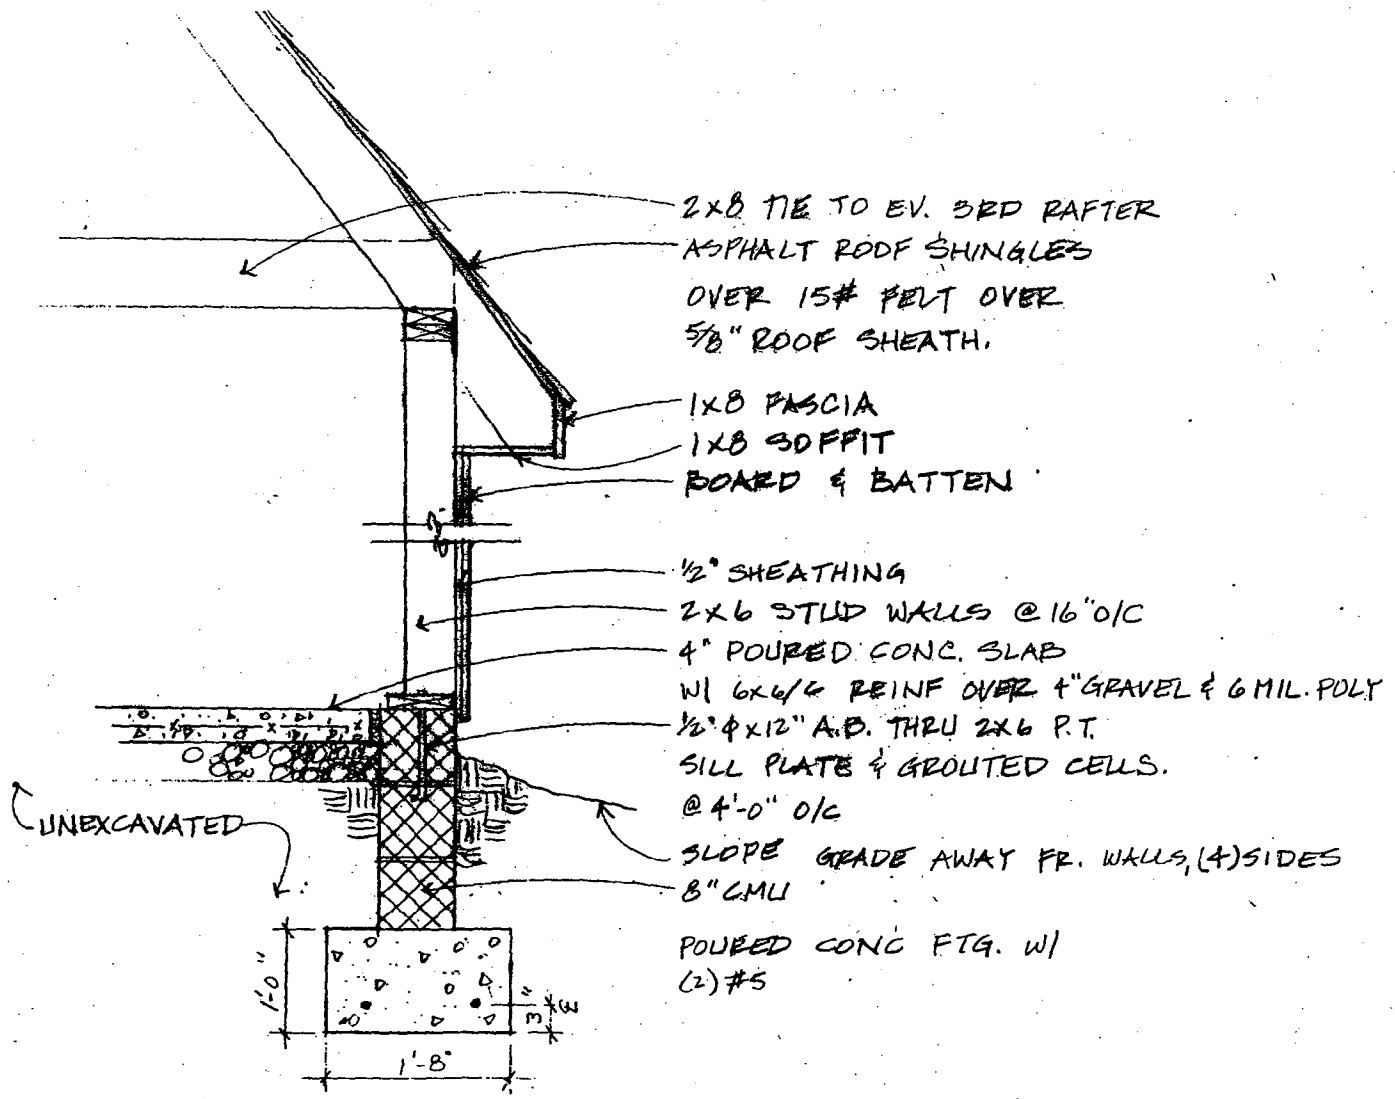 2x8 TIE TO EV. 3RD RAFTER
ASPHALT ROOF SHINGLES
OVER 15# FELT OVER
5/8" ROOF SHEATH.
1x8 FASCIA
1x8 SOFFIT
BOARD & BATTEN
1/2" SHEATHING
2x6 STUD WALLS @ 16" O/C
4" POURED CONC. SLAB
W/ 6x6/6 REINF OVER 4" GRAVEL & 6 MIL. POLY
1/2" φ x 12" A.B. THRU 2x6 P.T.
SILL PLATE & GROUTED CELLS.
@ 4'-0" O/C
UNEXCAVATED
SLOPE GRADE AWAY FR. WALLS, (4) SIDES
8" CMU
POURED CONC FTG. W/
(2) #5
1'-0"
3"
1'-8"